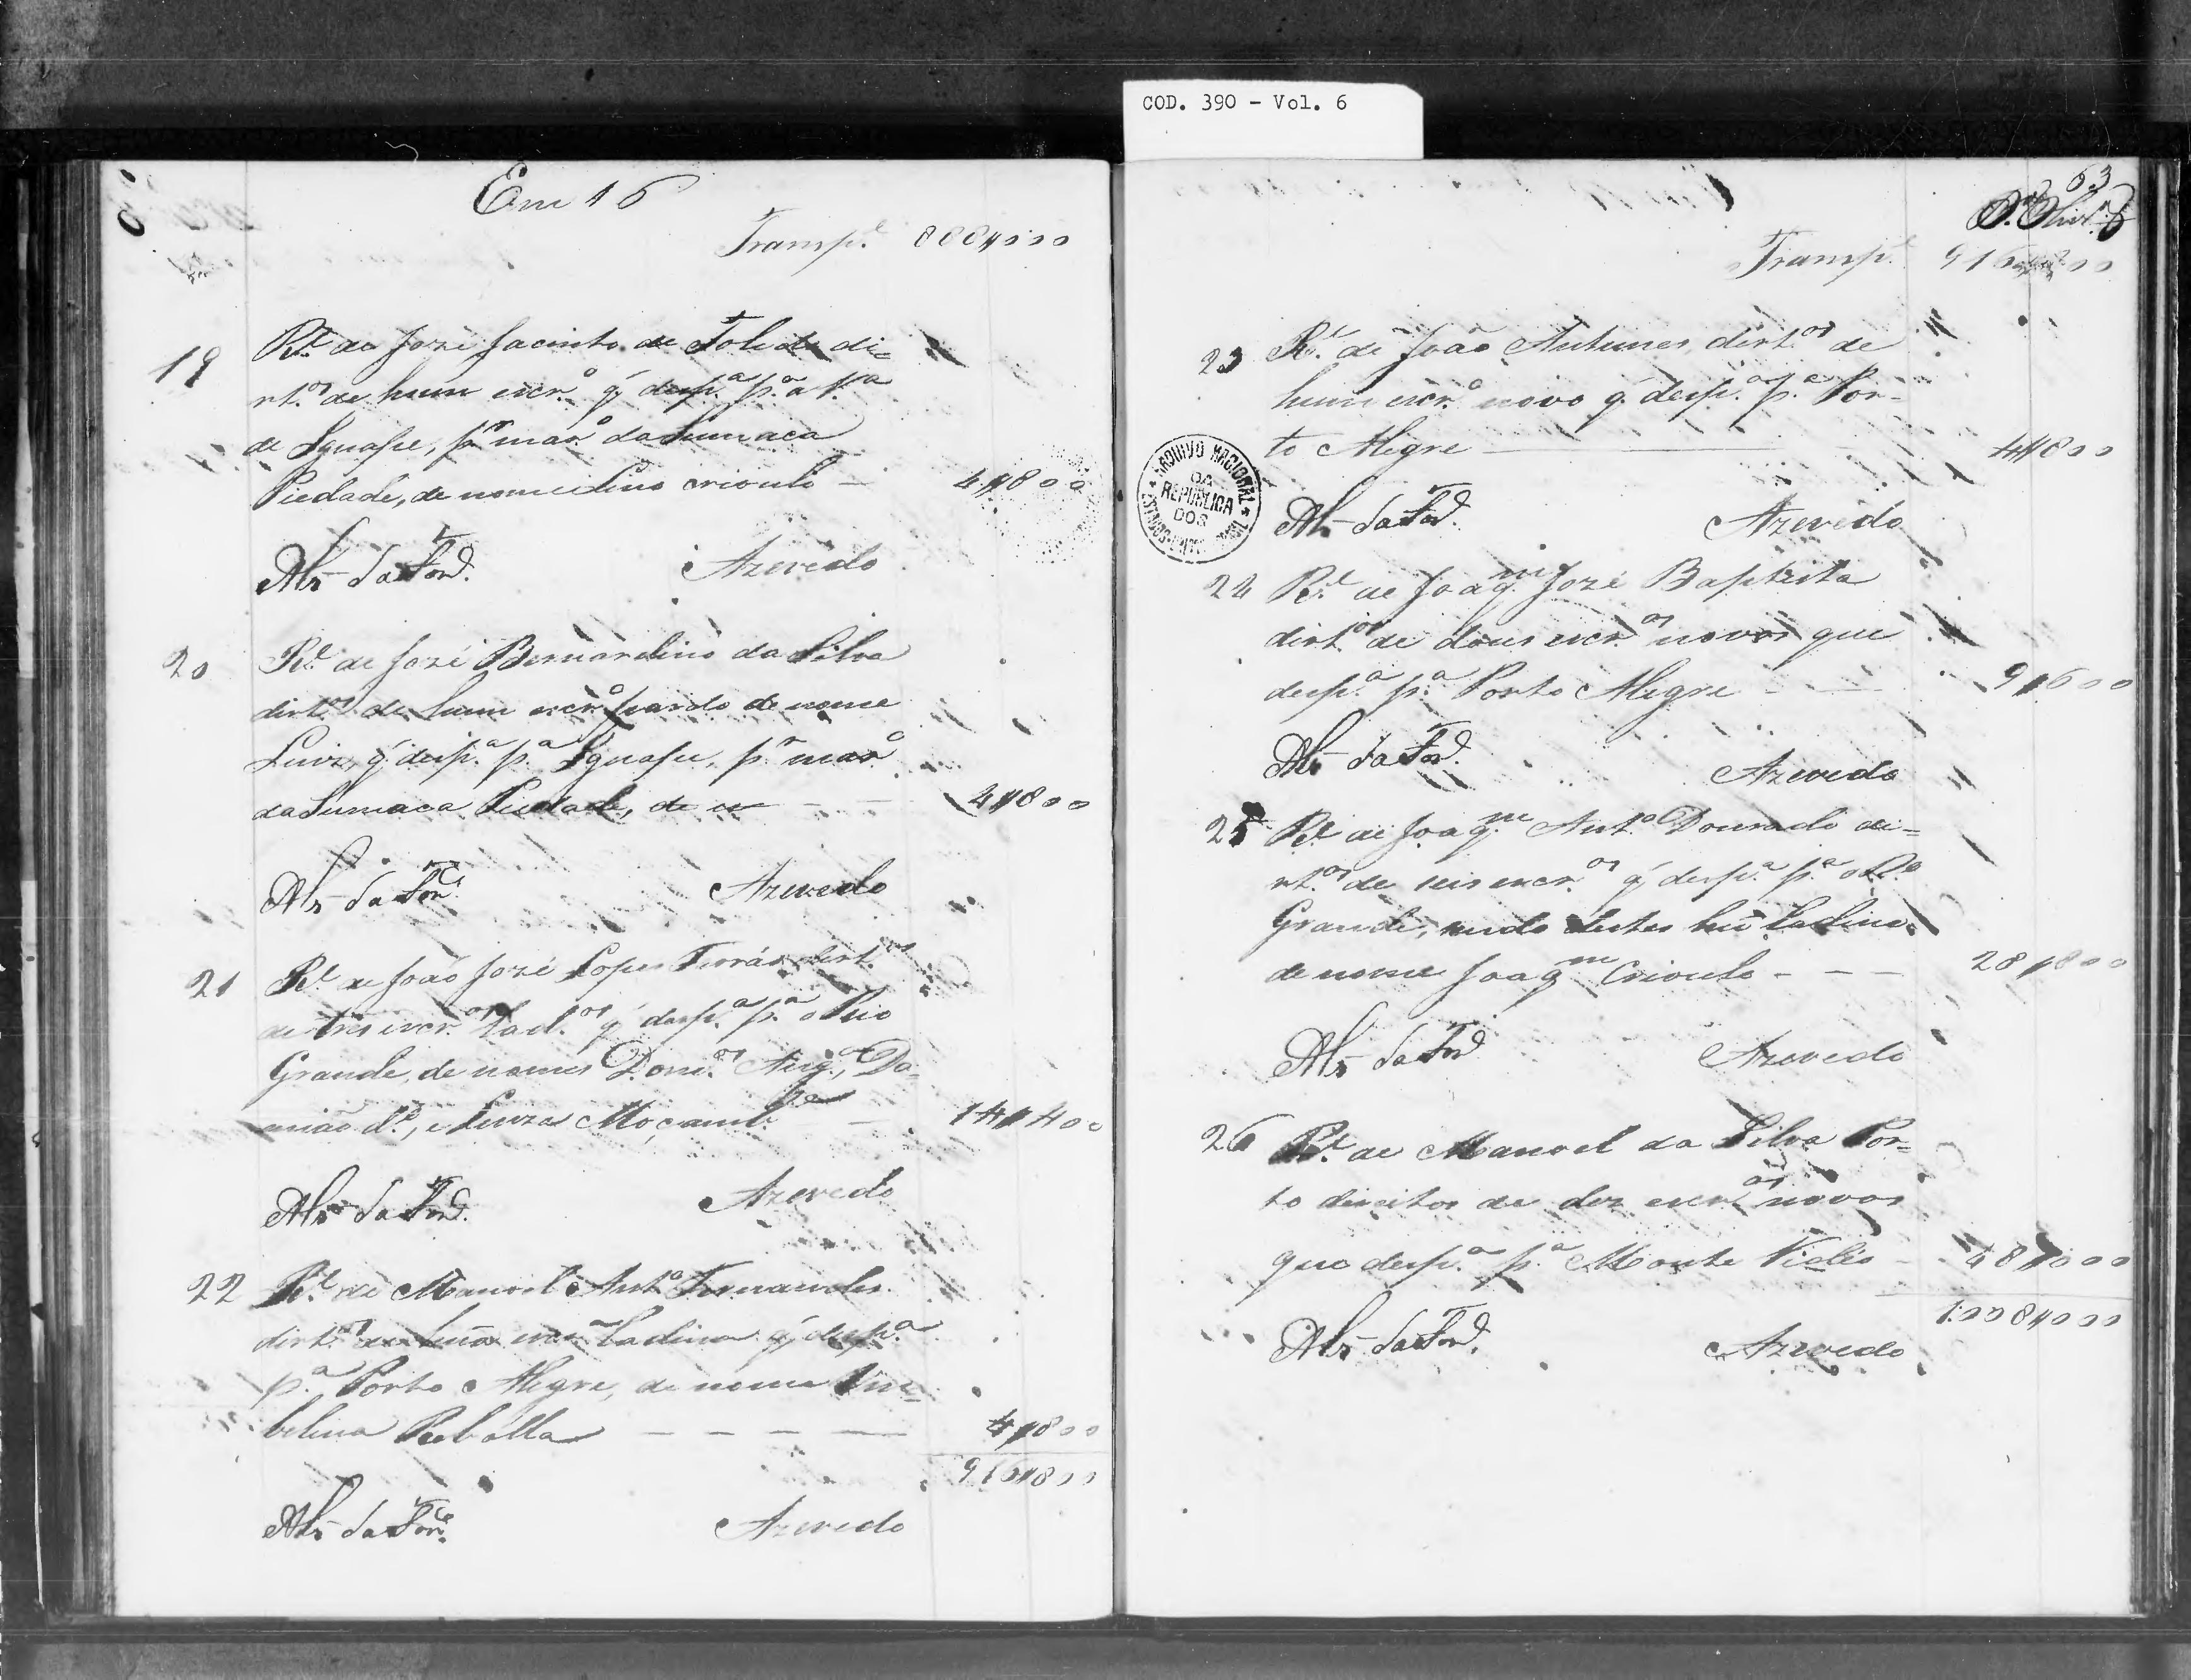 COD. 390 - Vol. 6
Em 16
Transp.e 888$000
19 R.e de Jozé Jacinto de Toledo di=
rt.os de hum escr.o q' desp.a p.a a V.a
de Iguape, p.r mar.o da Sumaca
Piedade, de nome Lino crioulo — 4$800
Alz da Fon.ca Azevedo
20 R.e de Jozé Bernardino da Silva
dirt.os de hum escr.o pardo de nome
Luiz, q' desp.a p.a Iguape, p.r mar.o
da Sumaca Piedade, — — 4$800
Alz da Fon.ca Azevedo
21 R.e de João Jozé Lopes Ferrás dirt.os
de tres escr.os lad.os q' desp.a p.a o Rio
Grande, de nomes Dom.os Ang.a, Da=
mião d.o, e Luiza Moçamb.e — 14$400
Alz da Fon.ca Azevedo
22 R.e de Manoel Ant.o Fernandes
dirt.os de huã escr.a ladina q' desp.a
p.a Porto Alegre, de nome Um=
belina Rebolla — — — — 4$800
916$800
Alz da Fon.ca Azevedo
63
Transp.e 916$800
23 R.e de João Antunes dirt.os de
hum escr.o novo q' desp.a p.a Por=
to Alegre — 4$800
ARQUIVO NACIONAL
DA
REPUBLICA
DOS
Alz da Fon.ca Azevedo
24 R.e de Joaq.m Jozé Baptista
dirt.os de dous escr.os novos que
desp.a p.a Porto Alegre — — 9$600
Alz da Fon.ca Azevedo
25 R.e de Joaq.m Ant.o Dourado di=
rt.os de seis escr.os q' desp.a p.a o R.o
Grande, sendo destes hũ ladino
de nome Joaq.m Crioulo — — — 28$800
Alz da Fon.ca Azevedo
26 R.e de Manoel da Silva Por=
to direitos de dez escr.os novos
que desp.a p.a Monte Vidio — 48$000
1:008$000
Alz da Fon.ca Azevedo